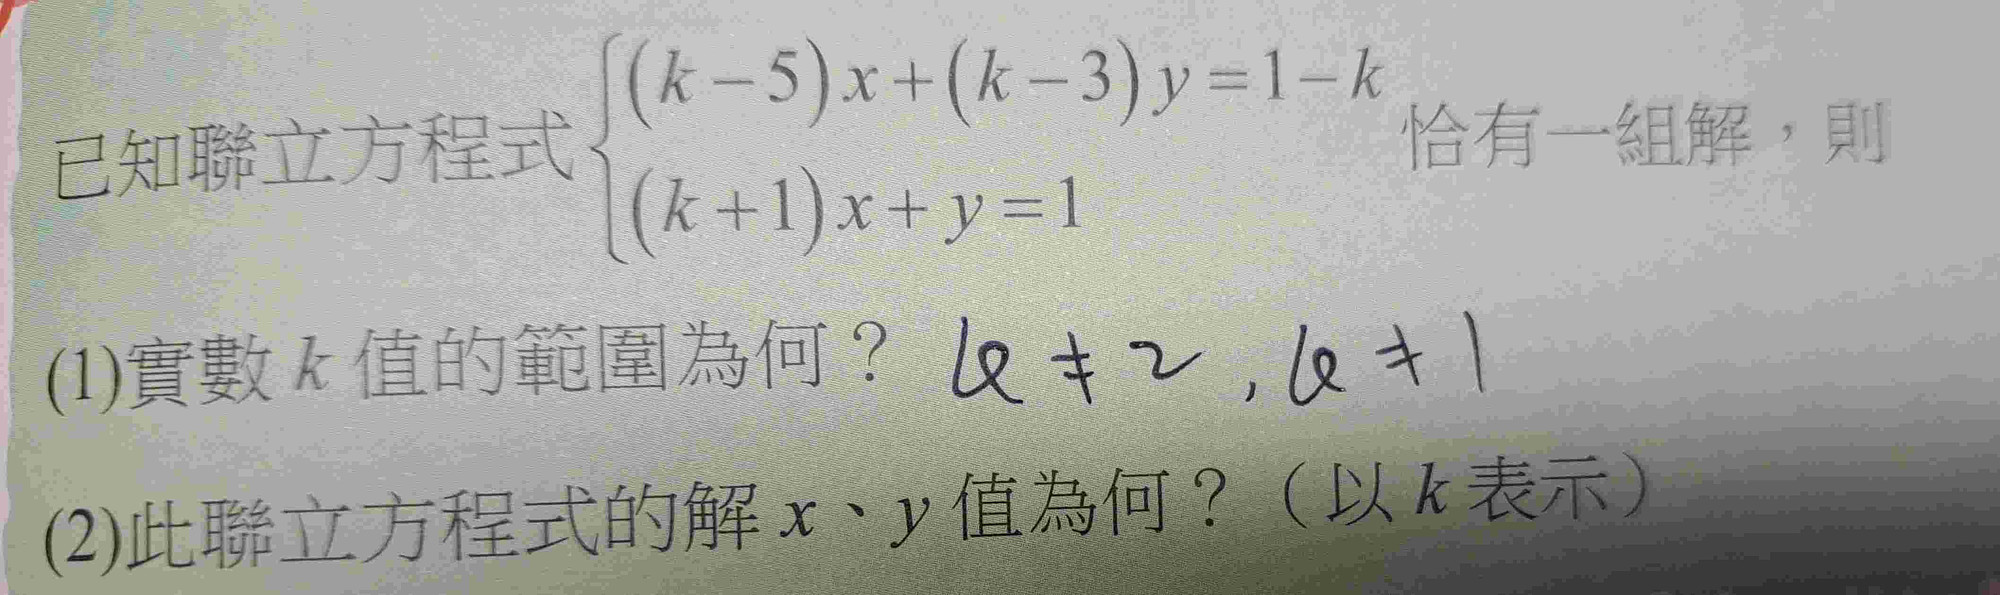 已知聯立方程式 { (k−5)x+(k−3)y=1−k
(k+1)x+y=1 恰有一組解，則
(1)實數 k 值的範圍為何？ k ≠ 2 , k ≠ 1
(2)此聯立方程式的解 x、y 值為何？（以 k 表示）